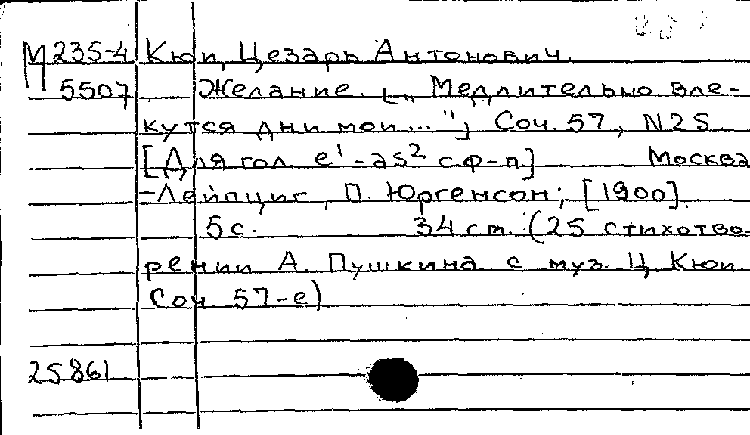 М 235-4 Кюи, Цезарь Антонович.
5507 Желание. [„Медлительно вле-
кутся дни мои..."] Соч. 57, N25
[Для гол. e¹-as² с ф-п.] Москва
-Лейпциг, П. Юргенсон, [1900].
5с. 34 см. (25 стихотво-
рении А. Пушкина с муз. Ц. Кюи
Соч. 57-е)
25861